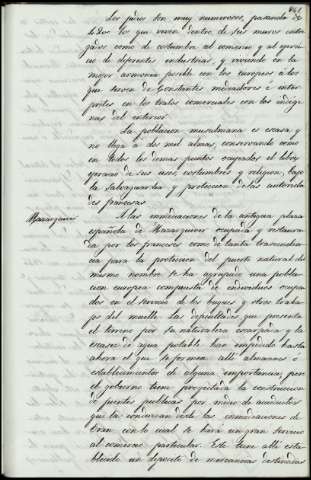 Los judios son muy numerosos, pasando de
420 los que viven dentro de sus muros entre-
gados como de costumbre al comercio y al ejerci-
cio de diferentes industrias, y viviendo en la
mejor armonia posible con los europeos á los
que sirven de constantes mediadores é inter-
pretes en los tratos comerciales con los indige-
nas del interior.
La poblacion musulmana es escasa y
no llega á dos mil almas, conservando como
en todos los demas puntos ocupados el libre
goce de sus usos, costumbres y religion, bajo
la salvaguardia y proteccion de las autorida-
des francesas.
Mazarquivir
A las inmediaciones de la antigua plaza
española de Mazarquivir ocupada y restaura-
da por los franceses como de tanta trascenden-
cia para la proteccion del puerto natural del
mismo nombre se ha agrupado una pobla-
cion europea compuesta de individuos ocupa-
dos en el servicio de los buques y otros traba-
jos del muelle. Las dificultades que presenta
el terreno por su naturaleza escarpada y la
escasez de agua potable han impedido hasta
ahora el que se formen allí almacenes ó
establecimientos de alguna importancia; pero
el gobierno tiene proyectada la construccion
de fuentes publicas por medio de acueductos
que la conduzcan desde las inmediaciones de
Oran con lo cual se hará un gran servicio
al comercio particular. Este tiene allí esta-
blecido un deposito de mercancias destinadas